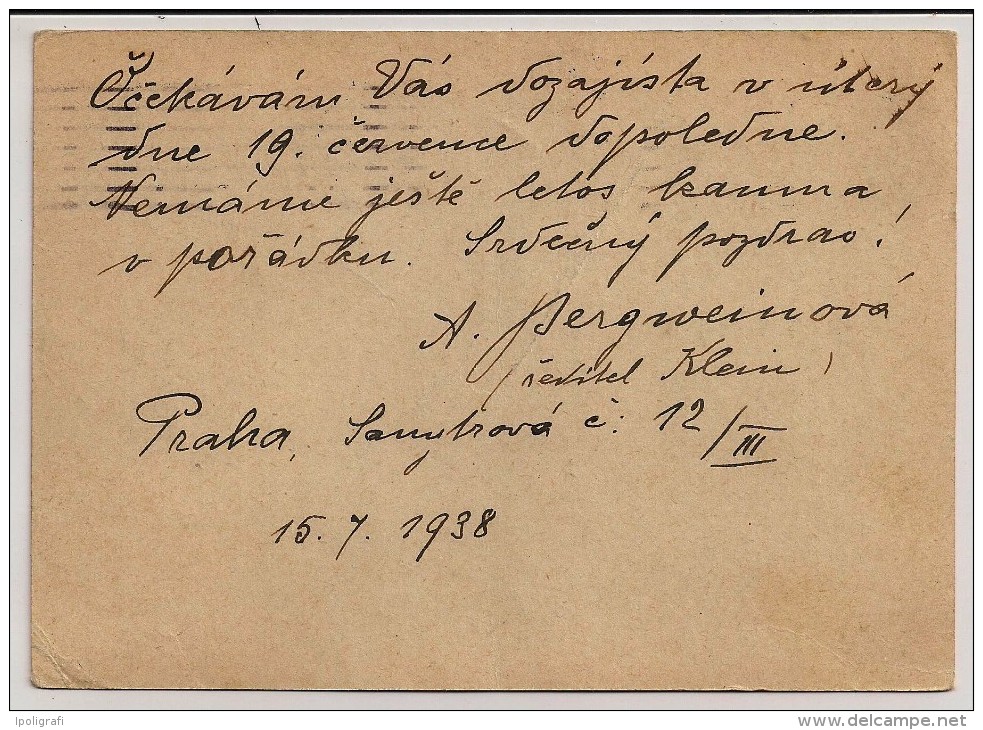 Očekávám Vás dozajista v úterý
dne 19. července dopoledne.
Nemáme ještě letos kamna
v pořádku. Srdečný pozdrav!
A. Bergweinová
(ředitel Klein)
Praha, č: 12/III
15. 7. 1938
Ipoligrafi
www.delcampe.net